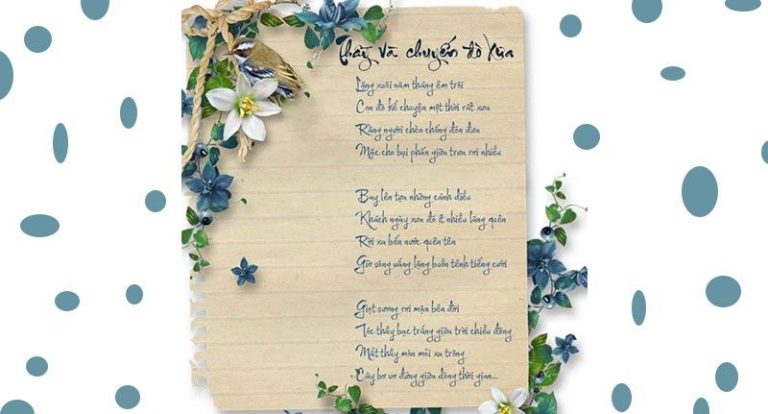 Thầy và chuyến đò xưa
Lặng xuôi năm tháng êm trôi
Con đò kể chuyện một thời rất xưa
Rằng người chèo chống đón đưa
Mặc cho bụi phấn giữa trưa rơi nhiều
Bay lên tựa những cánh diều
Khách ngày xưa đó ít nhiều lãng quên
Rời xa bến nước quên tên
Giờ sông vắng lặng buồn tênh tiếng cười
Giọt sương rơi mặn bên đời
Tóc thầy bạc trắng giữa trời chiều đông
Mắt thầy mòn mỏi xa trông
Cây bơ vơ đứng giữa dòng thời gian...